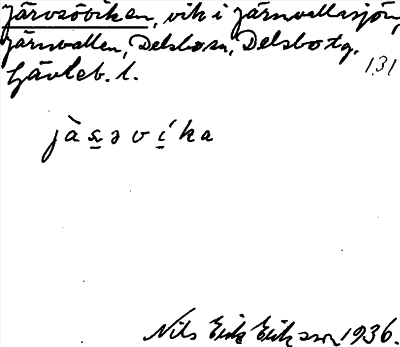 Järvsöviken, vik i Järnvallssjön,
Järnvallen, Delsbo sn, Delsbo tg.
Gävleb. l.
131
jàsəvíka
Nils Erik Eriksson 1936.